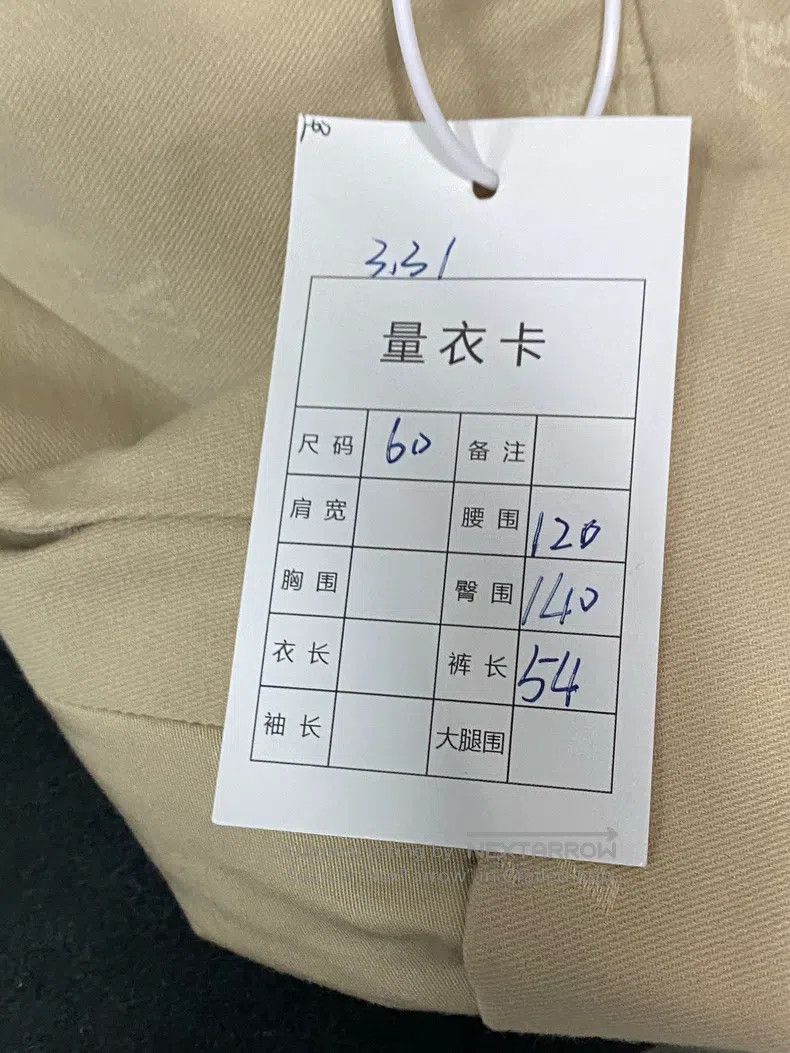 3.31
量衣卡
尺码 60 备注
肩宽 腰围 120
胸围 臀围 140
衣长 裤长 54
袖长 大腿围
NEXTARROW